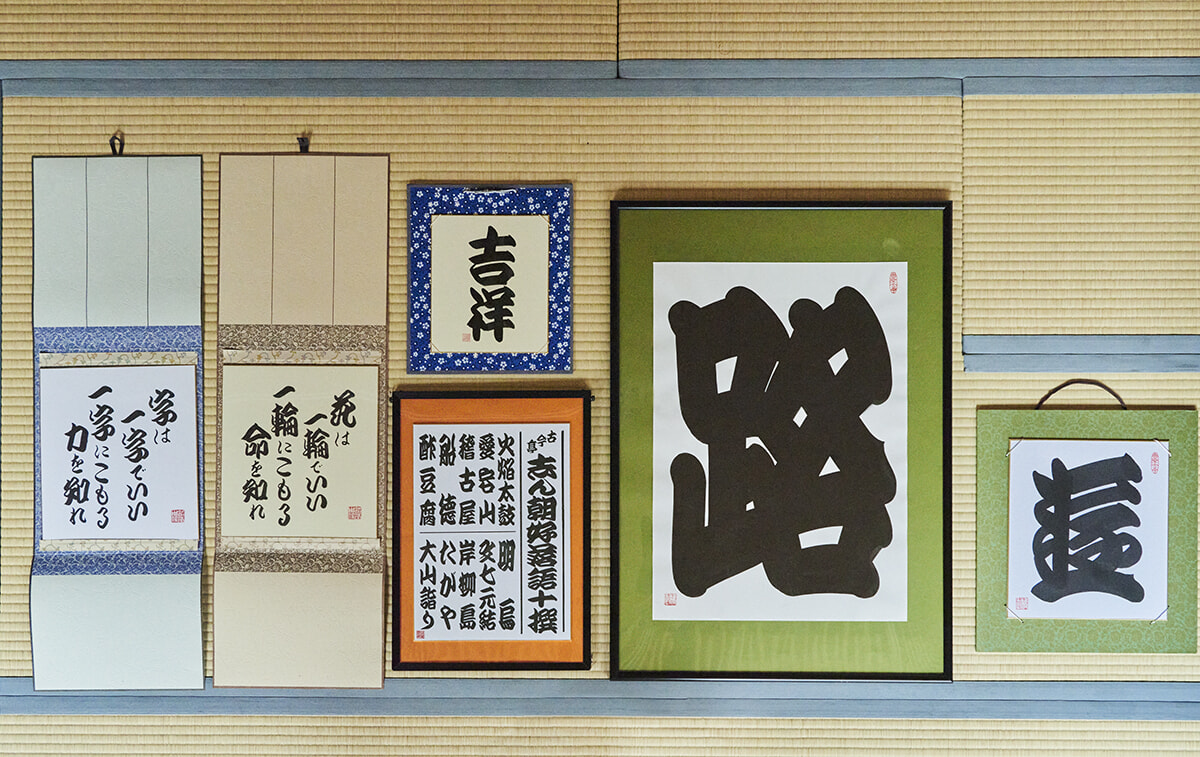 字は
一字でいい
一字にこもる
力を知れ
花は
一輪でいい
一輪にこもる
命を知れ
吉祥
古今亭 志ん朝好落語十撰
火焔太鼓 明烏
愛宕山 文七元結
稽古屋 岸柳島
船徳 たがや
酢豆腐 大山詣り
路